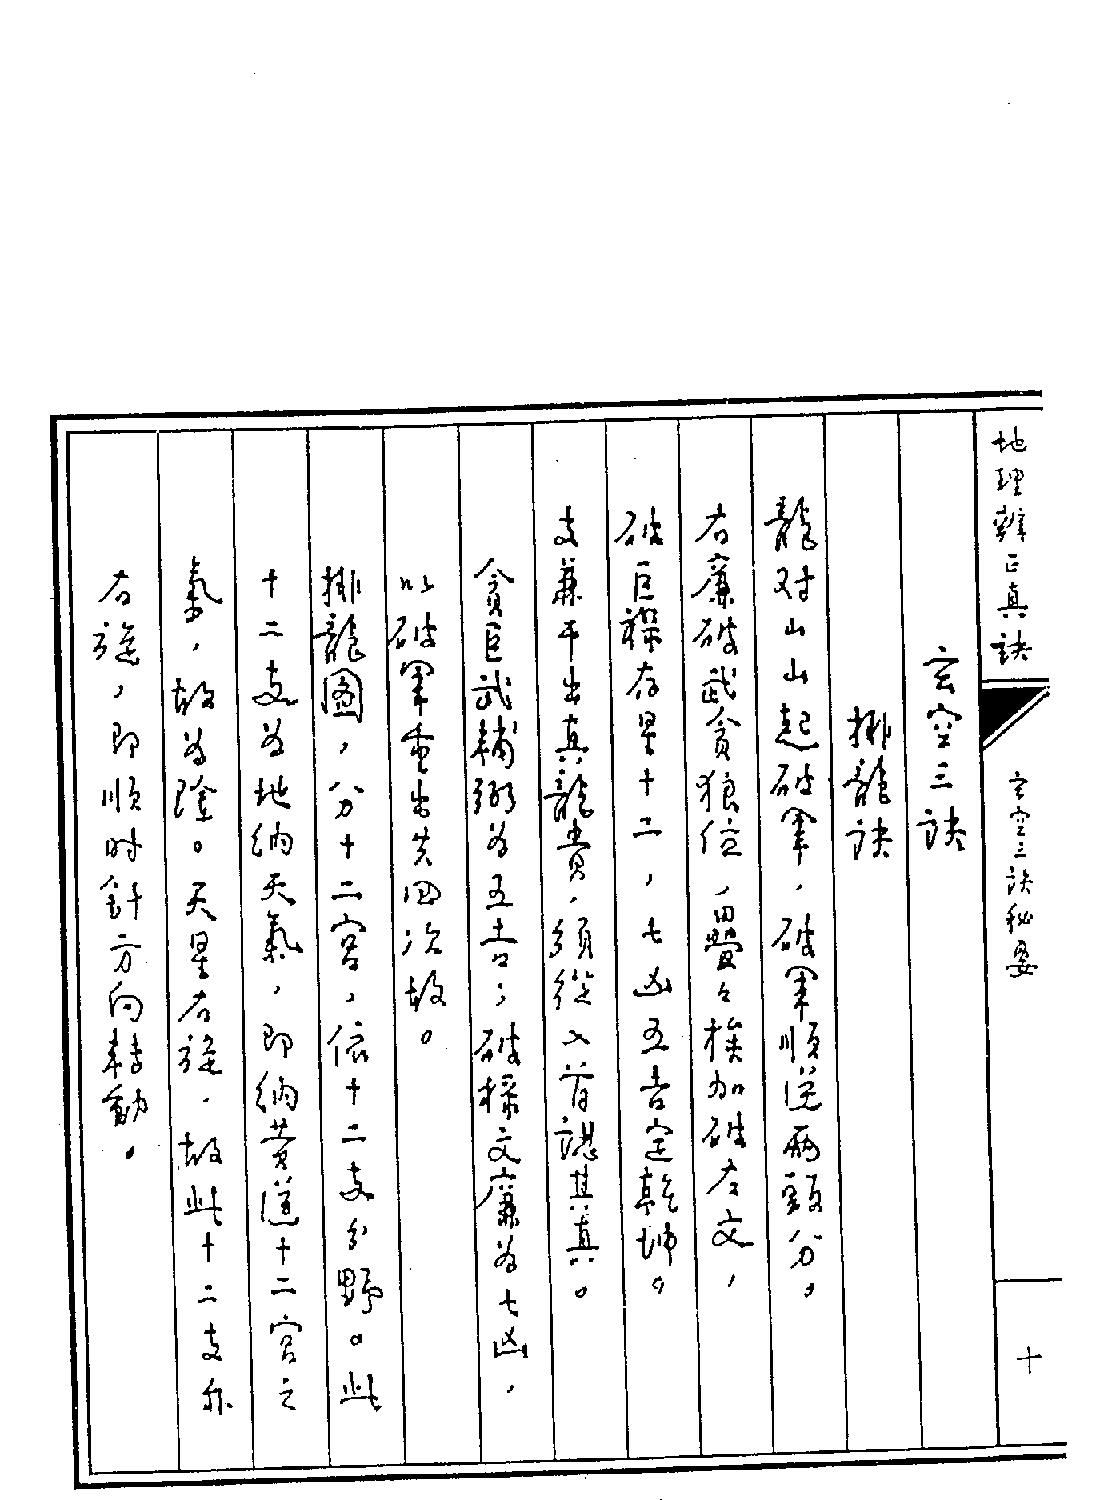 地理辨正真訣
玄空三訣秘要
十
玄空三訣
排龍訣
龍对山山起破軍，破軍順逆兩頭分。
右廉破武貪狼位，疊々挨加破左文，
破巨祿存星十二，七凶五吉定乾坤。
支兼干出真龍貴，須從入首認其真。
貪巨武輔弼为五吉，破祿文廉为七凶，
以破軍重出共四次故。
排龍圖，分十二宮，依十二支分野。此
十二支为地納天氣，即納黃道十二宮之
氣，故为陰。天星右旋，故此十二支亦
右旋，即順时針方向转動。